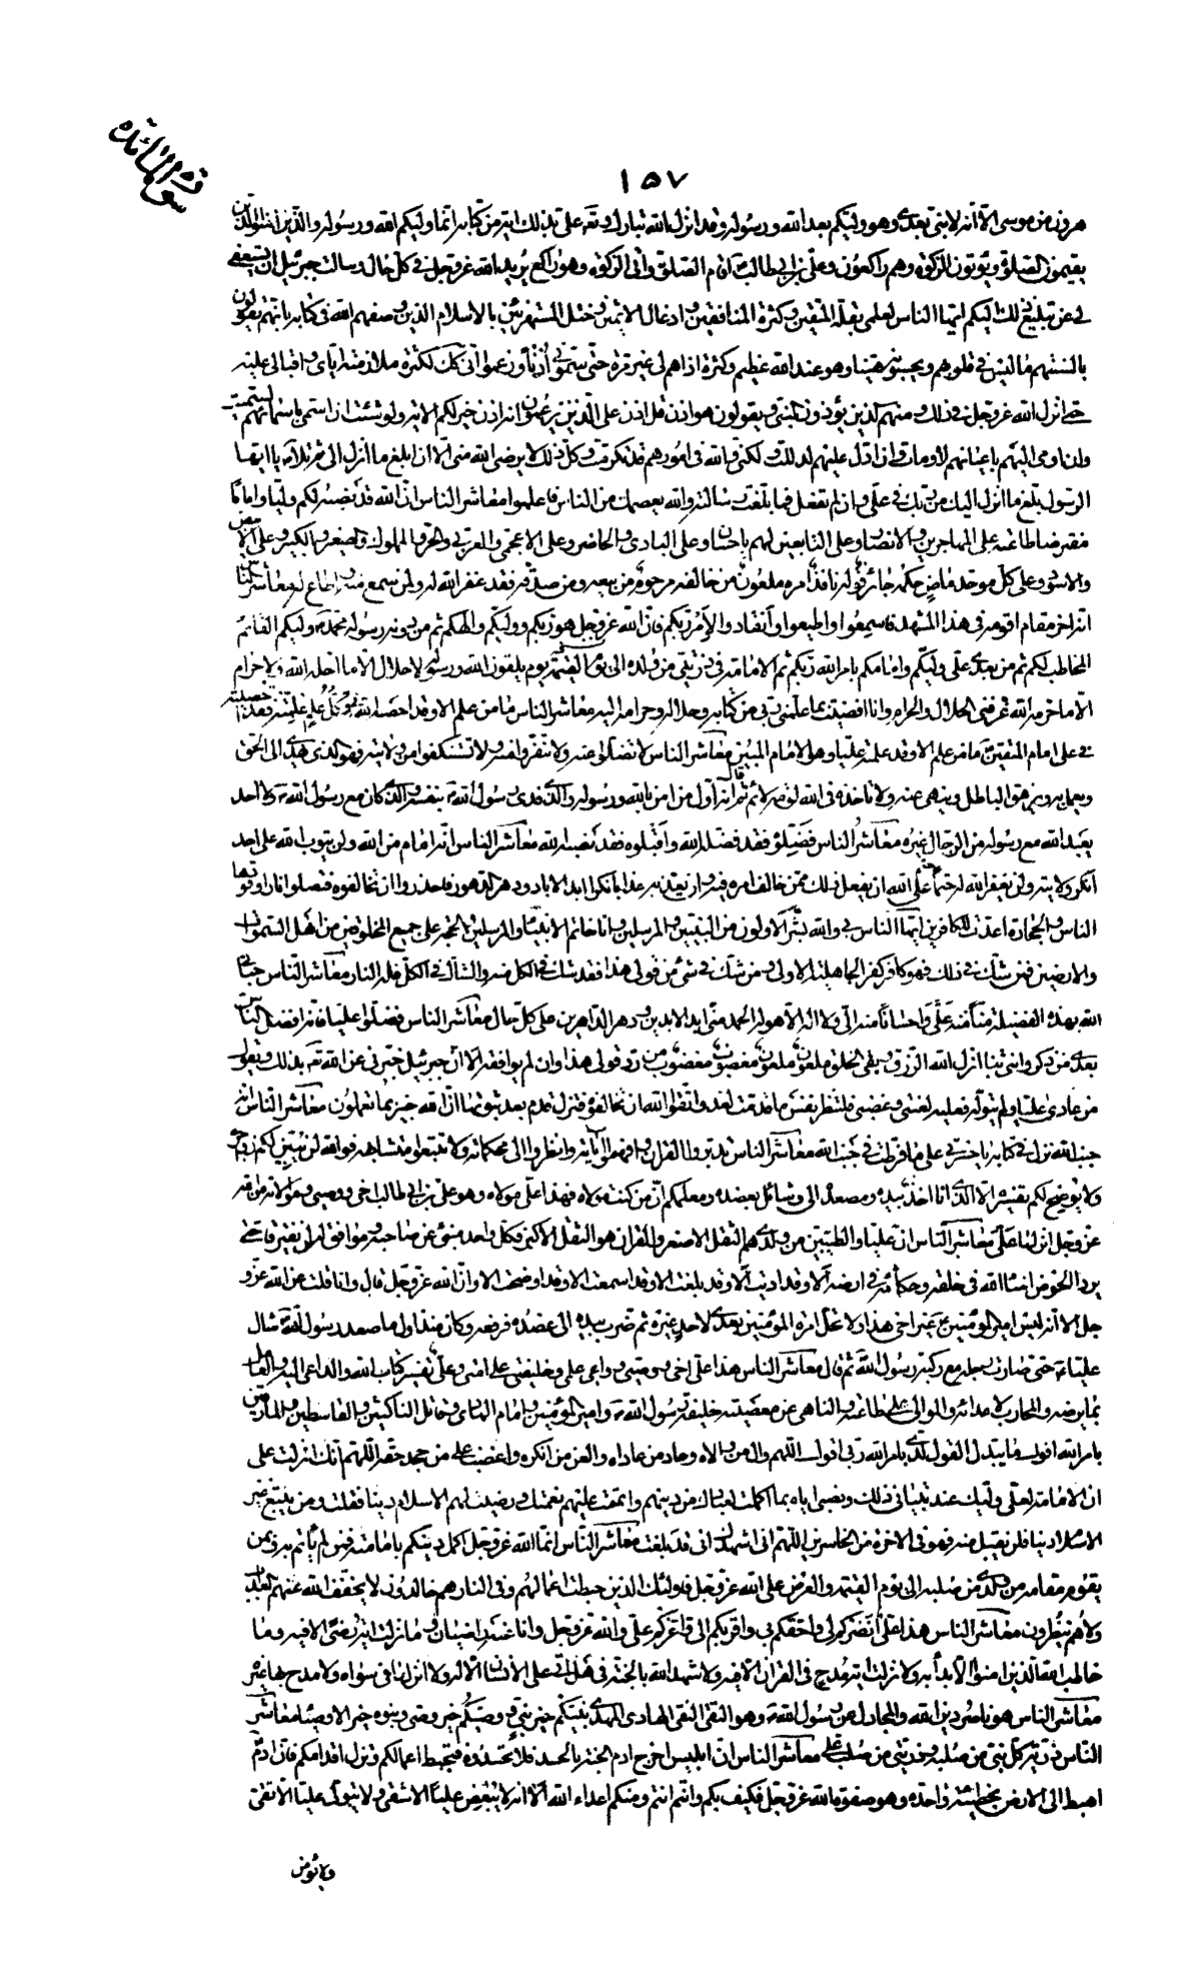 سورة المائدة
١٥٧
هرون من موسى الا انه لا نبى بعدى وهو وليكم بعد الله ورسوله وقد انزل الله تبارك وتعه على بذلك اية من كتابه انما وليكم الله ورسوله والذين امنوا الذين
يقيمون الصلوة ويؤتون الزكوة وهم راكعون وعلى بن ابى طالب اقام الصلوة واتى الزكوة وهو راكع يريد الله عز وجل فى كل حال وسالت جبرئيل ان يستعفى
لى عن تبليغ ذلك اليكم ايها الناس لعلمى بقلة المتقين وكثرة المنافقين وادغال الاثمين وختل المستهزئين بالاسلام الذين وصفهم الله فى كتابه بانهم يقولون
بالسنتهم ما ليس فى قلوبهم ويحسبونه هينا وهو عند الله عظيم وكثرة اذاهم لى غير مرة حتى سمونى اذنا وزعموا انى كك لكثرة ملازمته اياى واقبالى عليه
حتى انزل الله عز وجل فى ذلك ومنهم الذين يؤذون النبى ويقولون هو اذن قل اذن على الذين يزعمون انه اذن خير لكم الاية ولو شئت ان اسمى باسمائهم لسميت
وان اومى اليهم باعيانهم لاومات وان ادل عليهم لدللت ولكنى والله فى امورهم قد تكرمت وكل ذلك لا يرضى الله منى الا ان ابلغ ما انزل الى ثم تلا ء يا ايها
الرسول بلغ ما انزل اليك من ربك فى على وان لم تفعل فما بلغت رسالته والله يعصمك من الناس فاعلموا معاشر الناس ان الله قد نصبه لكم وليا واماما
مفترضا طاعته على المهاجرين والانصار وعلى التابعين لهم باحسان وعلى البادى والحاضر وعلى الاعجمى والعربى والحر والمملوك والصغير والكبير وعلى الابيض
والاسود وعلى كل موحد ماض حكمه جائز قوله نافذ امره ملعون من خالفه مرحوم من تبعه ومن صدقه فقد غفر الله له ولمن سمع منه واطاع له معاشر الناس
انه اخر مقام اقومه فى هذا المشهد فاسمعوا واطيعوا وانقادوا لامر ربكم فان الله عز وجل هو ربكم ووليكم والهكم ثم من دونه رسوله محمد ص وليكم القائم
المخاطب لكم ثم من بعدى على وليكم وامامكم بامر الله ربكم ثم الامامة فى ذريتى من ولده الى يوم القيمة يوم يلقون الله ورسوله لا حلال الا ما احله الله ولا حرام
الا ما حرمه الله عرفنى الحلال والحرام وانا افضيت بما علمنى ربى من كتابه وحلاله وحرامه اليه معاشر الناس ما من علم الا وقد احصاه الله فى وكل علم علمته فقد احصيته
فى على امام المتقين ما من علم الا وقد علمته عليا وهو الامام المبين معاشر الناس لا تضلوا عنه ولا تنفروا منه ولا تستنكفوا من ولايته فهو الذى يهدى الى الحق
ويعمل به ويزهق الباطل وينهى عنه ولا تاخذه فى الله لومة لائم ثم انه اول من امن بالله ورسوله والذى فدى رسول الله ص بنفسه والذى كان مع رسول الله ص ولا احد
يعبد الله مع رسوله من الرجال غيره معاشر الناس فضلوه فقد فضله الله واقبلوه فقد نصبه الله معاشر الناس انه امام من الله ولن يتوب الله على احد
انكر ولايته ولن يغفر الله له حتما على الله ان يفعل ذلك ممن خالف امره فيه وان يعذبه عذابا نكرا ابد الاباد ودهر الدهور فاحذروا ان تخالفوه فتصلوا نارا وقودها
الناس والحجارة اعدت للكافرين ايها الناس بى والله بشر الاولون من النبيين والمرسلين وانا خاتم الانبياء والمرسلين والحجة على جميع المخلوقين من اهل السموات
والارضين فمن شك فى ذلك فهو كافر كفر الجاهلية الاولى ومن شك فى شئ من قولى هذا فقد شك فى الكل منه والشاك فى الكل فله النار معاشر الناس حبانى
الله بهذه الفضيلة منا منه على واحسانا منه الى ولا اله الا هو له الحمد منى ابد الابدين ودهر الداهرين على كل حال معاشر الناس فضلوا عليا فانه افضل الناس
بعدى من ذكر وانثى بنا انزل الله الرزق وبقى الخلق ملعون ملعون مغضوب مغضوب من رد قولى هذا وان لم يوافقه الا ان جبرئيل خبرنى عن الله تعه بذلك ويقول
من عادى عليا ولم يتوله فعليه لعنتى وغضبى فلتنظر نفس ما قدمت لغد واتقوا الله ان تخالفوه فتزل قدم بعد ثبوتها ان الله خبير بما تعملون معاشر الناس انه
جنب الله نزل فى كتابه يا حسرتى على ما فرطت فى جنب الله معاشر الناس تدبروا القران وافهموا اياته وانظروا الى محكماته ولا تتبعوا متشابهه فوالله لن يبين لكم زواجره
ولا يوضح لكم تفسيره الا الذى انا اخذ بيده ومصعده الى وشائل بعضده ومعلمكم ان من كنت مولاه فهذا على مولاه وهو على بن ابى طالب اخى ووصيى وموالاته من الله
عز وجل انزلها على معاشر الناس ان عليا والطيبين من ولدى هم الثقل الاصغر والقران هو الثقل الاكبر وكل واحد منبئ عن صاحبه وموافق له لن يفترقا حتى
يردا الحوض امناء الله فى خلقه وحكامه فى ارضه الا وقد اديت الا وقد بلغت الا وقد اسمعت الا وقد اوضحت الا وان الله عز وجل قال وانا قلت عن الله عز و
جل الا انه ليس امير المؤمنين غير اخى هذا ولا تحل امرة المؤمنين بعدى لاحد غيره ثم ضرب بيده الى عضده فرفعه وكان منذ اول ما صعد رسول الله ص شال
عليا ع حتى صارت رجله مع ركبة رسول الله ص ثم قال معاشر الناس هذا على اخى ووصيى وواعى علمى وخليفتى على امتى وعلى تفسير كتاب الله والداعى اليه والعامل
بما يرضه والمحارب لاعدائه والموالى على طاعته والناهى عن معصيته خليفة رسول الله ص وامير المؤمنين وامام الهادى وقاتل الناكثين والقاسطين والمارقين
بامر الله اقول ما يبدل القول لدى بامر الله ربى اقول اللهم وال من والاه وعاد من عاداه والعن من انكره واغضب على من جحد حقه اللهم انك انزلت على
ان الامامة لعلى وليك عند تبيانى ذلك ونصبى اياه بما اكملت لعبادك من دينهم واتممت عليهم نعمتك ورضيت لهم الاسلام دينا فقلت ومن يبتغ غير
الاسلام دينا فلن يقبل منه فهو فى الاخرة من الخاسرين اللهم انى اشهدك انى قد بلغت معاشر الناس انما الله عز وجل اكمل دينكم بامامته فمن لم ياتم به وبمن
يقوم مقامه من ولدى من صلبه الى يوم القيمة والعرض على الله عز وجل فاولئك الذين حبطت اعمالهم وفى النار هم خالدون لا يخفف الله عنهم العذاب
ولا هم ينظرون معاشر الناس هذا على انصركم لى واحقكم بى واقربكم الى واعزكم على والله عز وجل وانا عنه راضيان وما نزلت اية رضى الا فيه وما
خاطب الله الذين امنوا الا بدأ به ولا نزلت اية مدح فى القران الا فيه ولا شهد الله بالجنة فى هل اتى على الانسان الا له ولا انزلها فى سواه ولا مدح بها غيره
معاشر الناس هو ناصر دين الله والمجادل عن رسول الله ص وهو التقى النقى الهادى المهدى نبيكم خير نبى ووصيكم خير وصى وبنوه خير الاوصياء معاشر
الناس ذرية كل نبى من صلبه وذريتى من صلب على معاشر الناس ان ابليس اخرج ادم من الجنة بالحسد فلا تحسدوه فتحبط اعمالكم وتزل اقدامكم فان ادم
اهبط الى الارض بخطيئة واحدة وهو صفوة الله عز وجل فكيف بكم وانتم انتم ومنكم اعداء الله الا انه لا يبغض عليا الا شقى ولا يتولى عليا الا تقى
ولا يؤمن